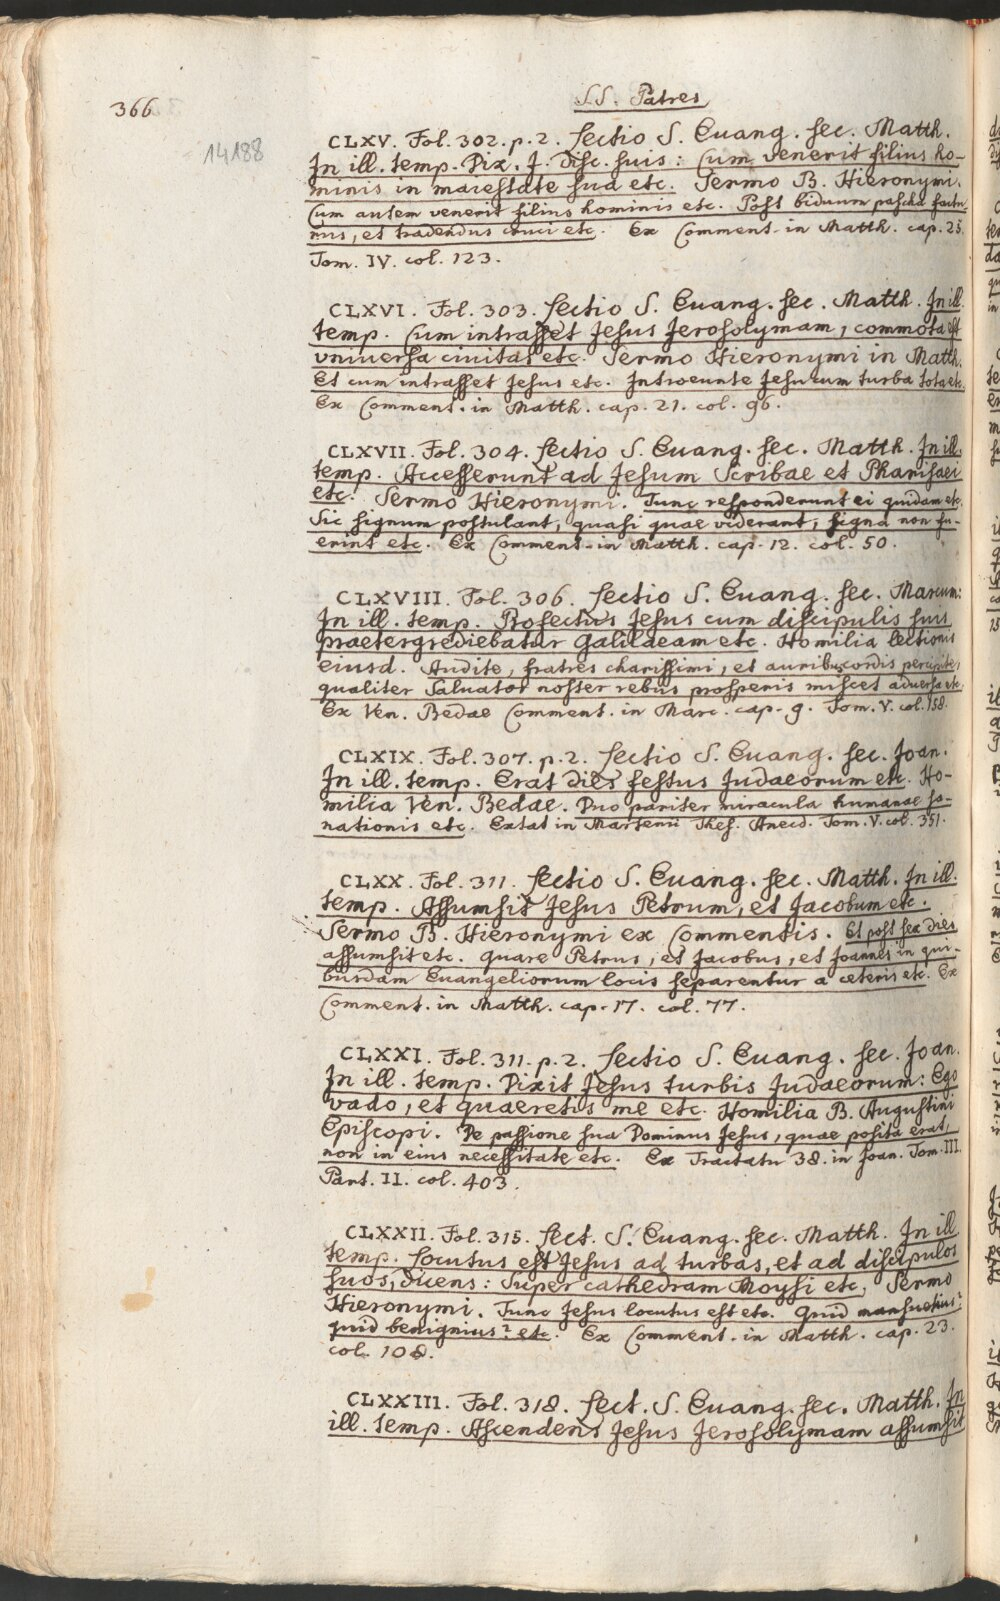 366
SS. Patres
= 14188
CLXV. Fol. 302. p. 2. Lectio S. Euang. sec. Matth.
In ill. temp. Dix. J. Disc. suis: Cum venerit filius ho-
minis in maiestate sua etc. Sermo B. Hieronymi.
Cum autem venerit filius hominis etc. Post biduum pascha factu-
rus, et tradendus cruci etc. Ex Comment. in Matth. cap. 25.
Tom. IV. col. 123.
CLXVI. Fol. 303. Lectio S. Euang. sec. Matth. In ill.
temp. Cum intrasset Jesus Jerosolymam, commota est
vniuersa ciuitas etc. Sermo Hieronymi in Matth.
Et cum intrasset Jesus etc. Introeunte Jesu cum turba tota etc.
Ex Comment. in Matth. cap. 21. col. 96.
CLXVII. Fol. 304. Lectio S. Euang. sec. Matth. In ill.
temp. Accesserunt ad Jesum Scribae et Pharisaei
etc. Sermo Hieronymi. Tunc responderunt ei quidam etc.
Sic signum postulant, quasi quae viderant, signa non fu-
erint etc. Ex Comment. in Matth. cap. 12. col. 50.
CLXVIII. Fol. 306. Lectio S. Euang. sec. Marcum:
In ill. temp. Profectus Jesus cum discipulis suis
praetergrediebatur Galilaeam etc. Homilia lectionis
eiusd. Audite, fratres charissimi, et auribus cordis percipite,
qualiter Saluator noster rebus prosperis miscet aduersa etc.
Ex Ven. Bedae Comment. in Marc. cap. 9. Tom. V. col. 158.
CLXIX. Fol. 307. p. 2. Lectio S. Euang. sec. Joan.
In ill. temp. Erat dies festus Judaeorum etc. Ho-
milia Ven. Bedae. Duo pariter miracula humanae sa-
nationis etc. Extat in Martenii Thes. Anecd. Tom. V. col. 351.
CLXX. Fol. 311. Lectio S. Euang. sec. Matth. In ill.
temp. Assumsit Jesus Petrum, et Jacobum etc.
Sermo B. Hieronymi ex Commentis. Et post sex dies
assumsit etc. Quare Petrus, et Jacobus, et Joannes in qui-
busdam Euangeliorum locis separentur a ceteris etc. Ex
Comment. in Matth. cap. 17. col. 77.
CLXXI. Fol. 311. p. 2. Lectio S. Euang. sec. Joan.
In ill. temp. Dixit Jesus turbis Judaeorum: Ego
vado, et quaeretis me etc. Homilia B. Augustini
Episcopi. De passione sua Dominus Jesus, quae posita erat,
non in eius necessitate etc. Ex Tractatu 38. in Joan. Tom. III.
Part. II. col. 403.
CLXXII. Fol. 315. Lect. S. Euang. sec. Matth. In ill.
temp. Locutus est Jesus ad turbas, et ad discipulos
suos, dicens: Super cathedram Moysi etc. Sermo
Hieronymi. Tunc Jesus locutus est etc. Quid mansuetius?
quid benignius? etc. Ex Comment. in Matth. cap. 23.
col. 108.
CLXXIII. Fol. 318. Lect. S. Euang. sec. Matth. In
ill. temp. Ascendens Jesus Jerosolymam assumsit